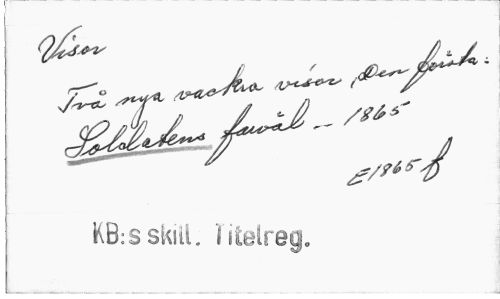 Visor
Två nya vackra visor, Den första:
Soldatens farväl — 1865
E1865 f
KB:s skill. Titelreg.